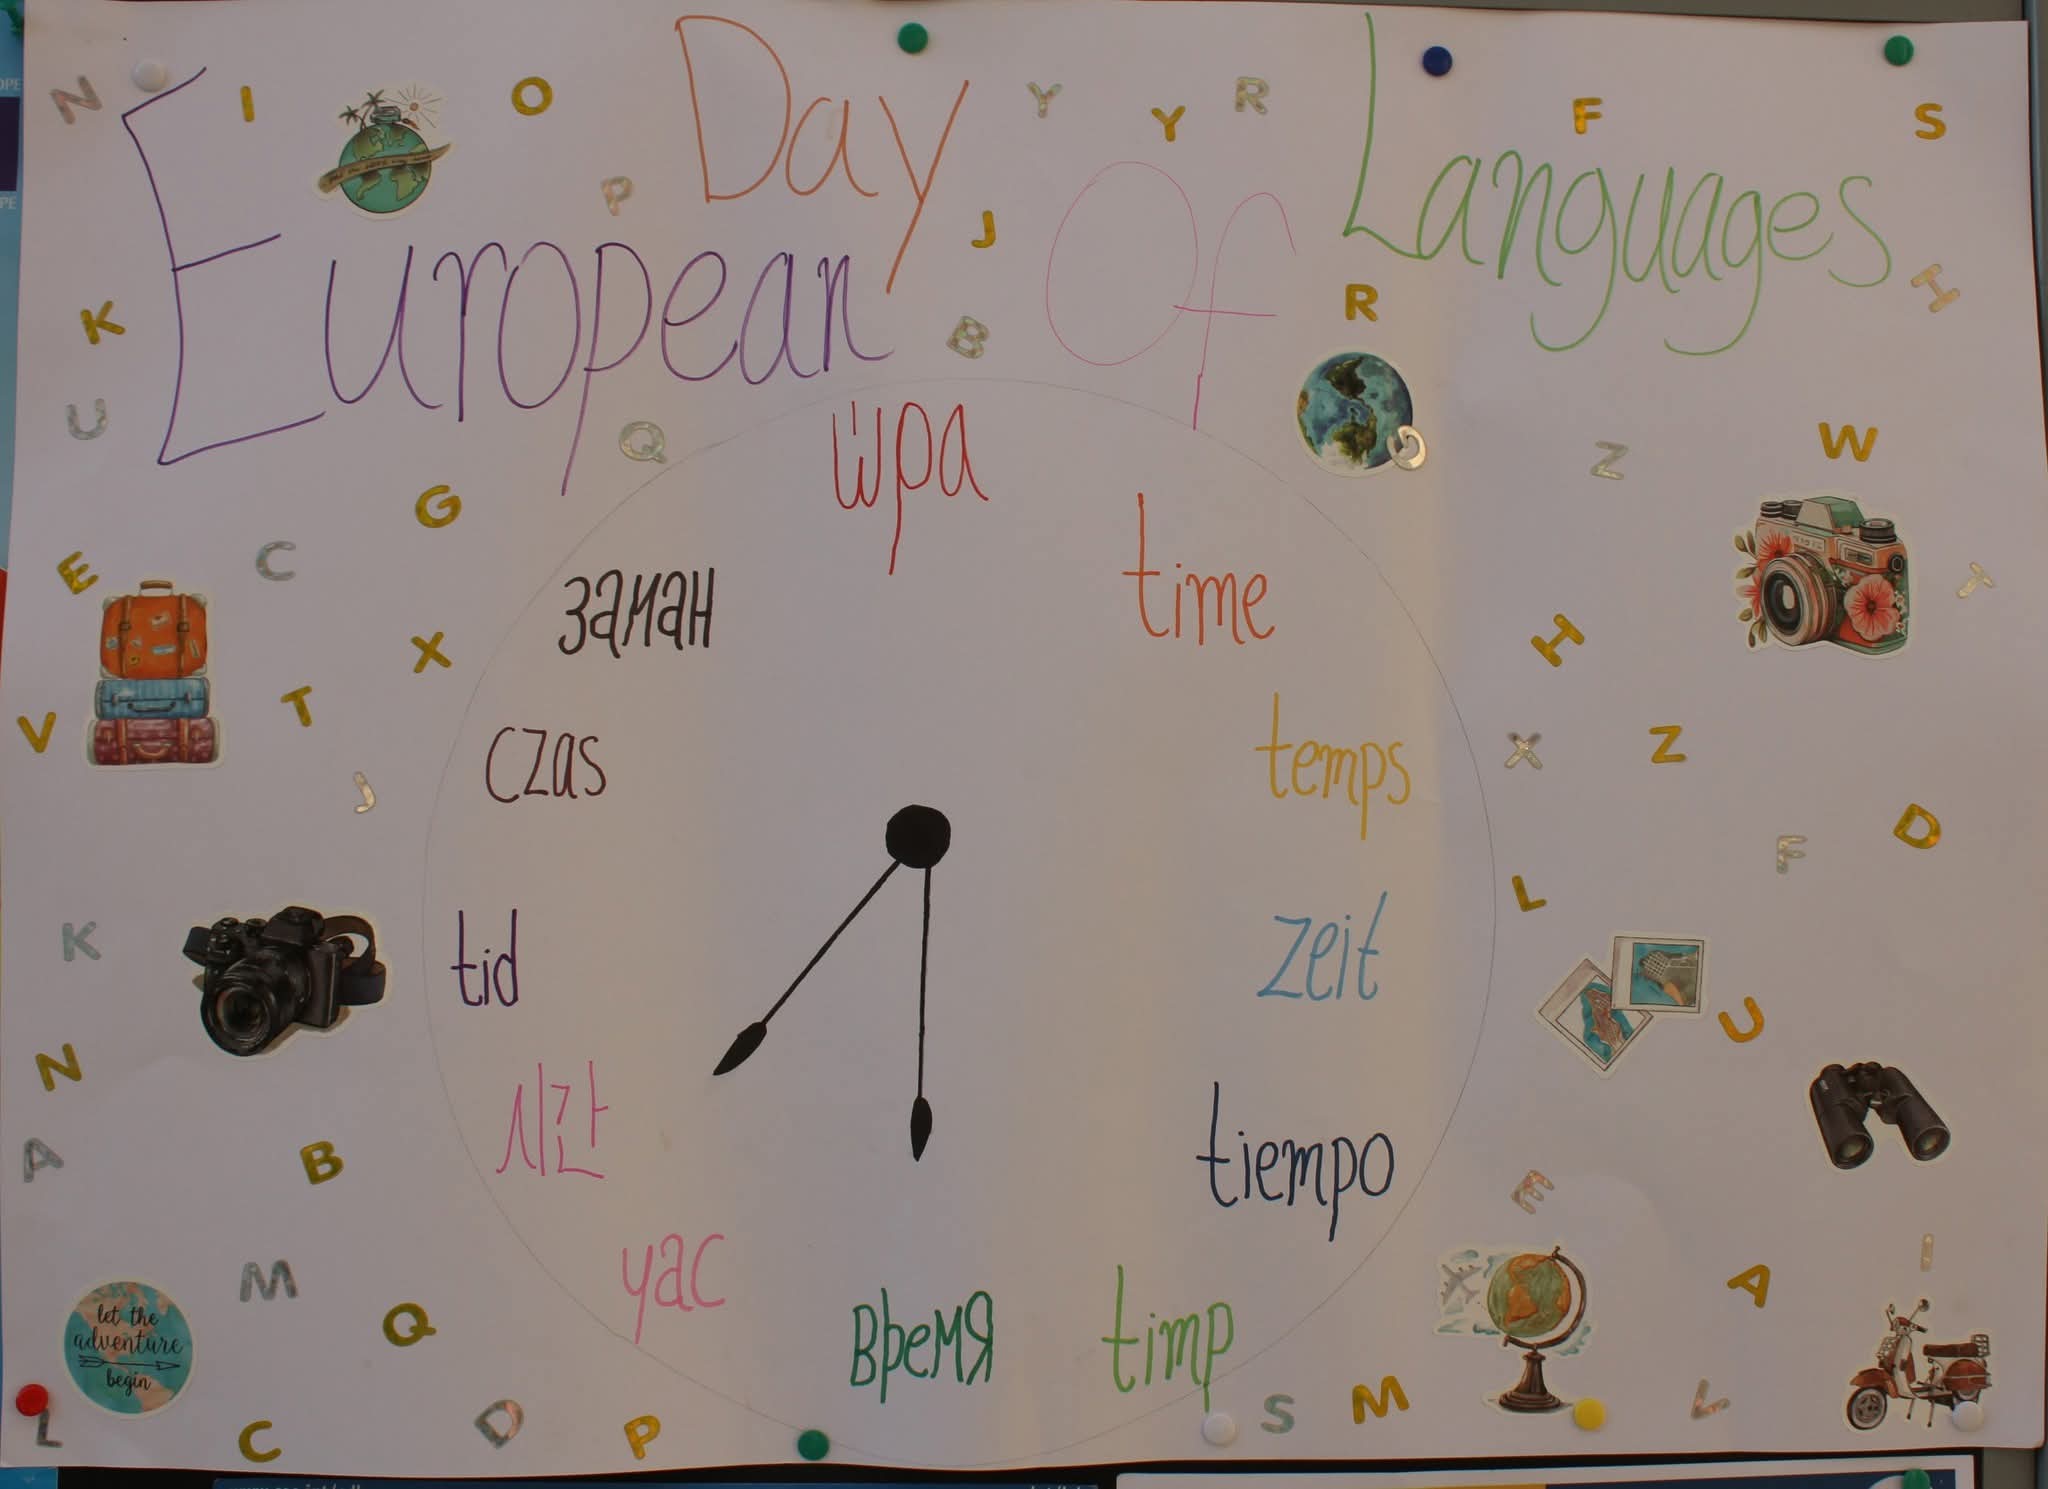 European Day Of Languages
ώρα
time
temps
zeit
tiempo
timp
время
час
시간
tid
czas
заман
let the
adventure
begin